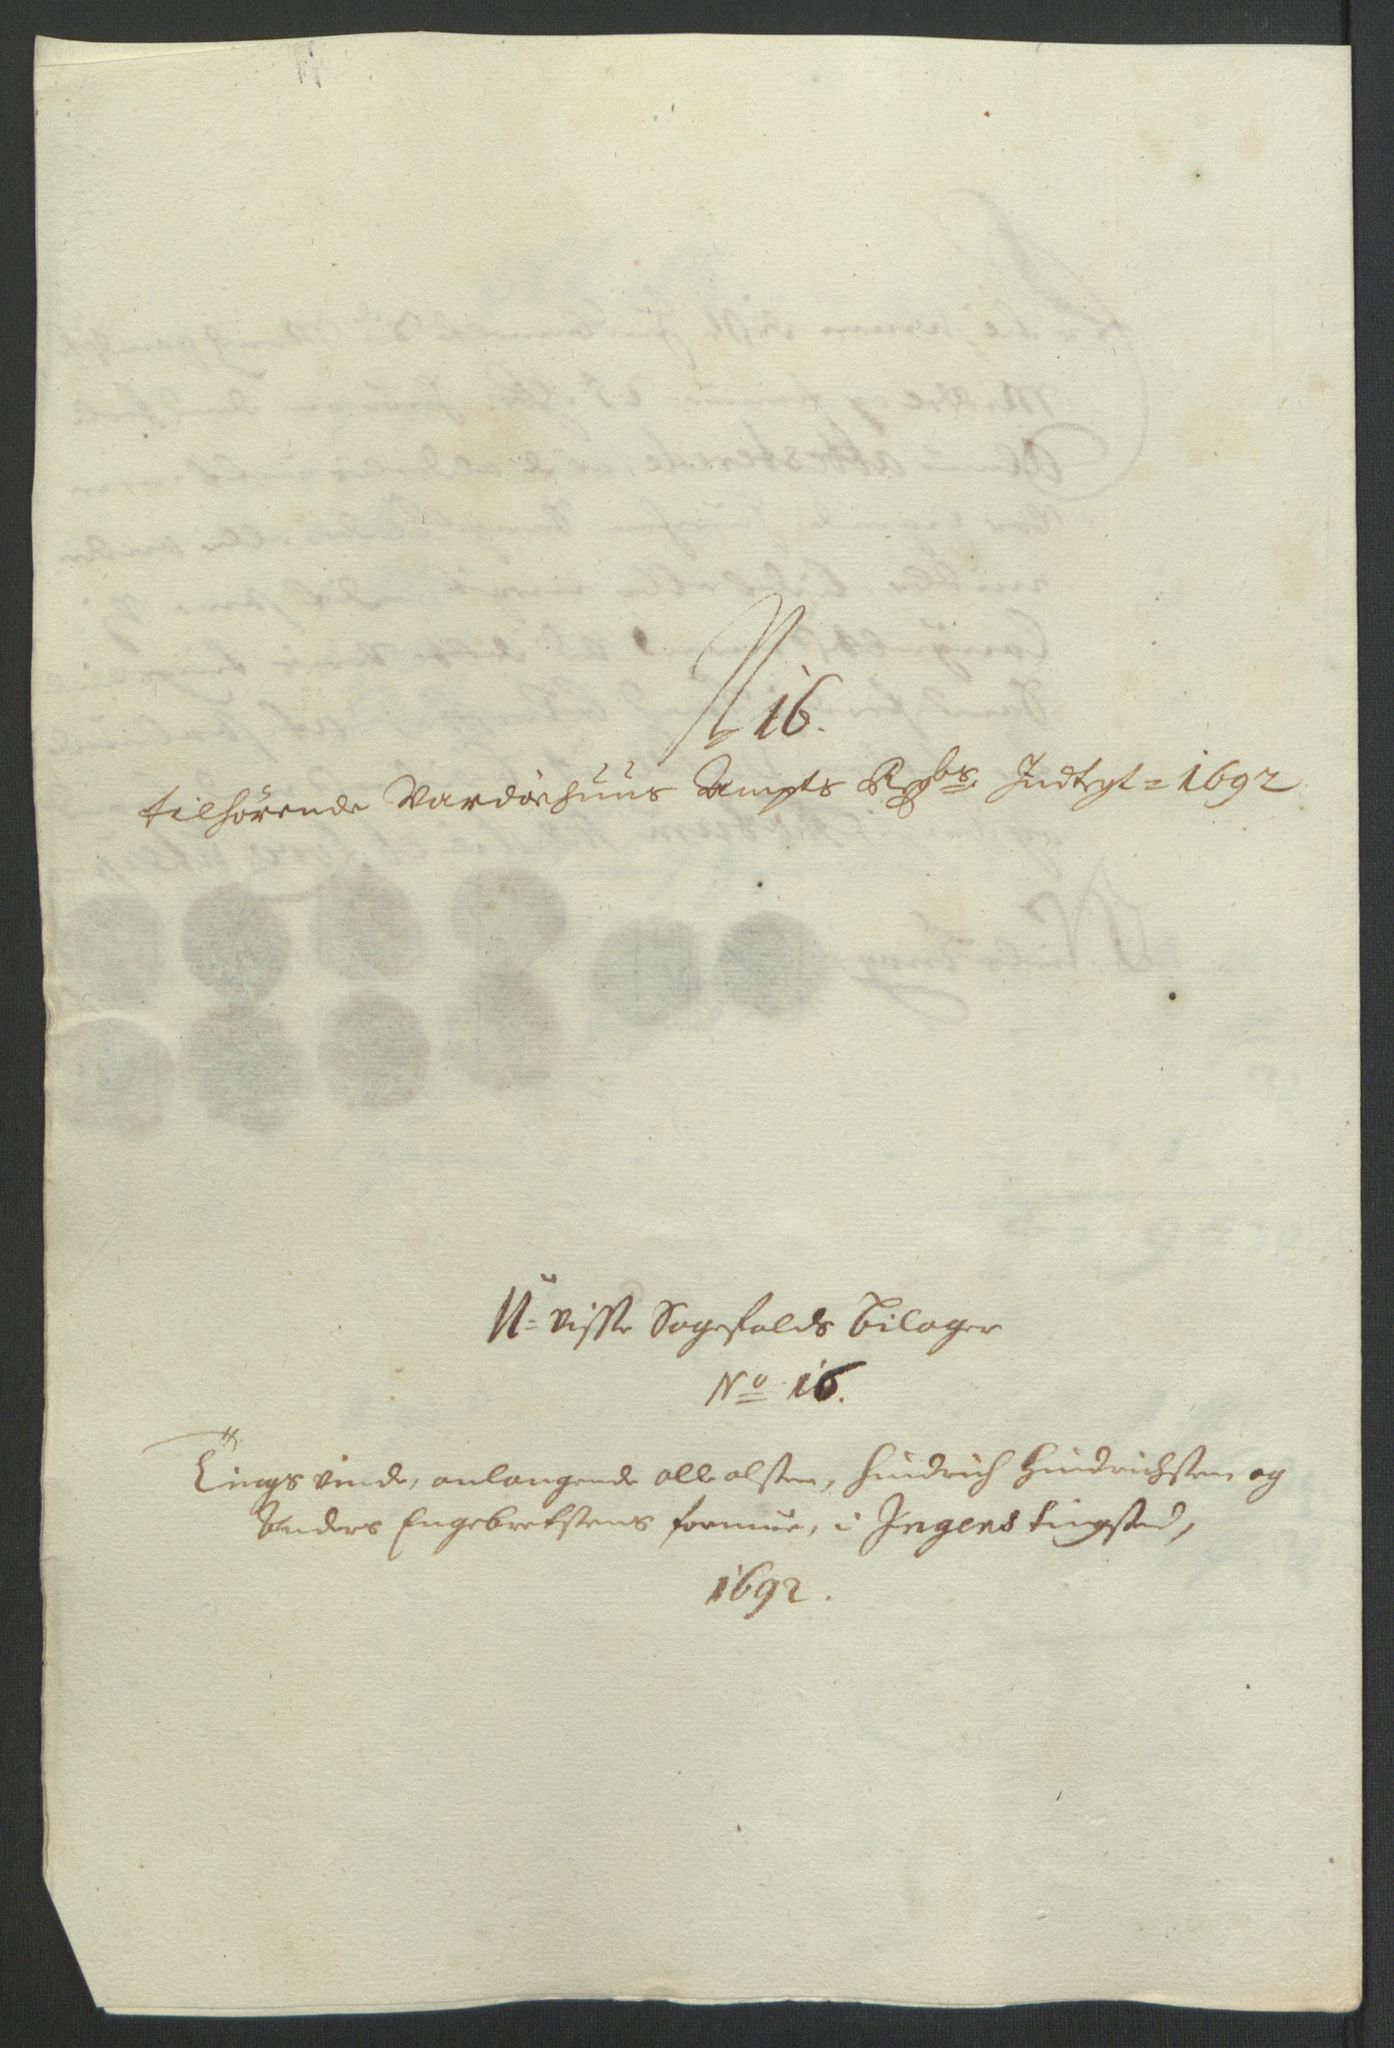 N 16.
tilhörende Wardöehuus Ampts Regbs Indtegt = 1692
U=visse Sagefalds Bilager
No 16.
Tings vinde, anlangende olle olssen, Hindrich Hindrichssen og
Anders Engebretssens formue, i Ingens tingsted,
1692.